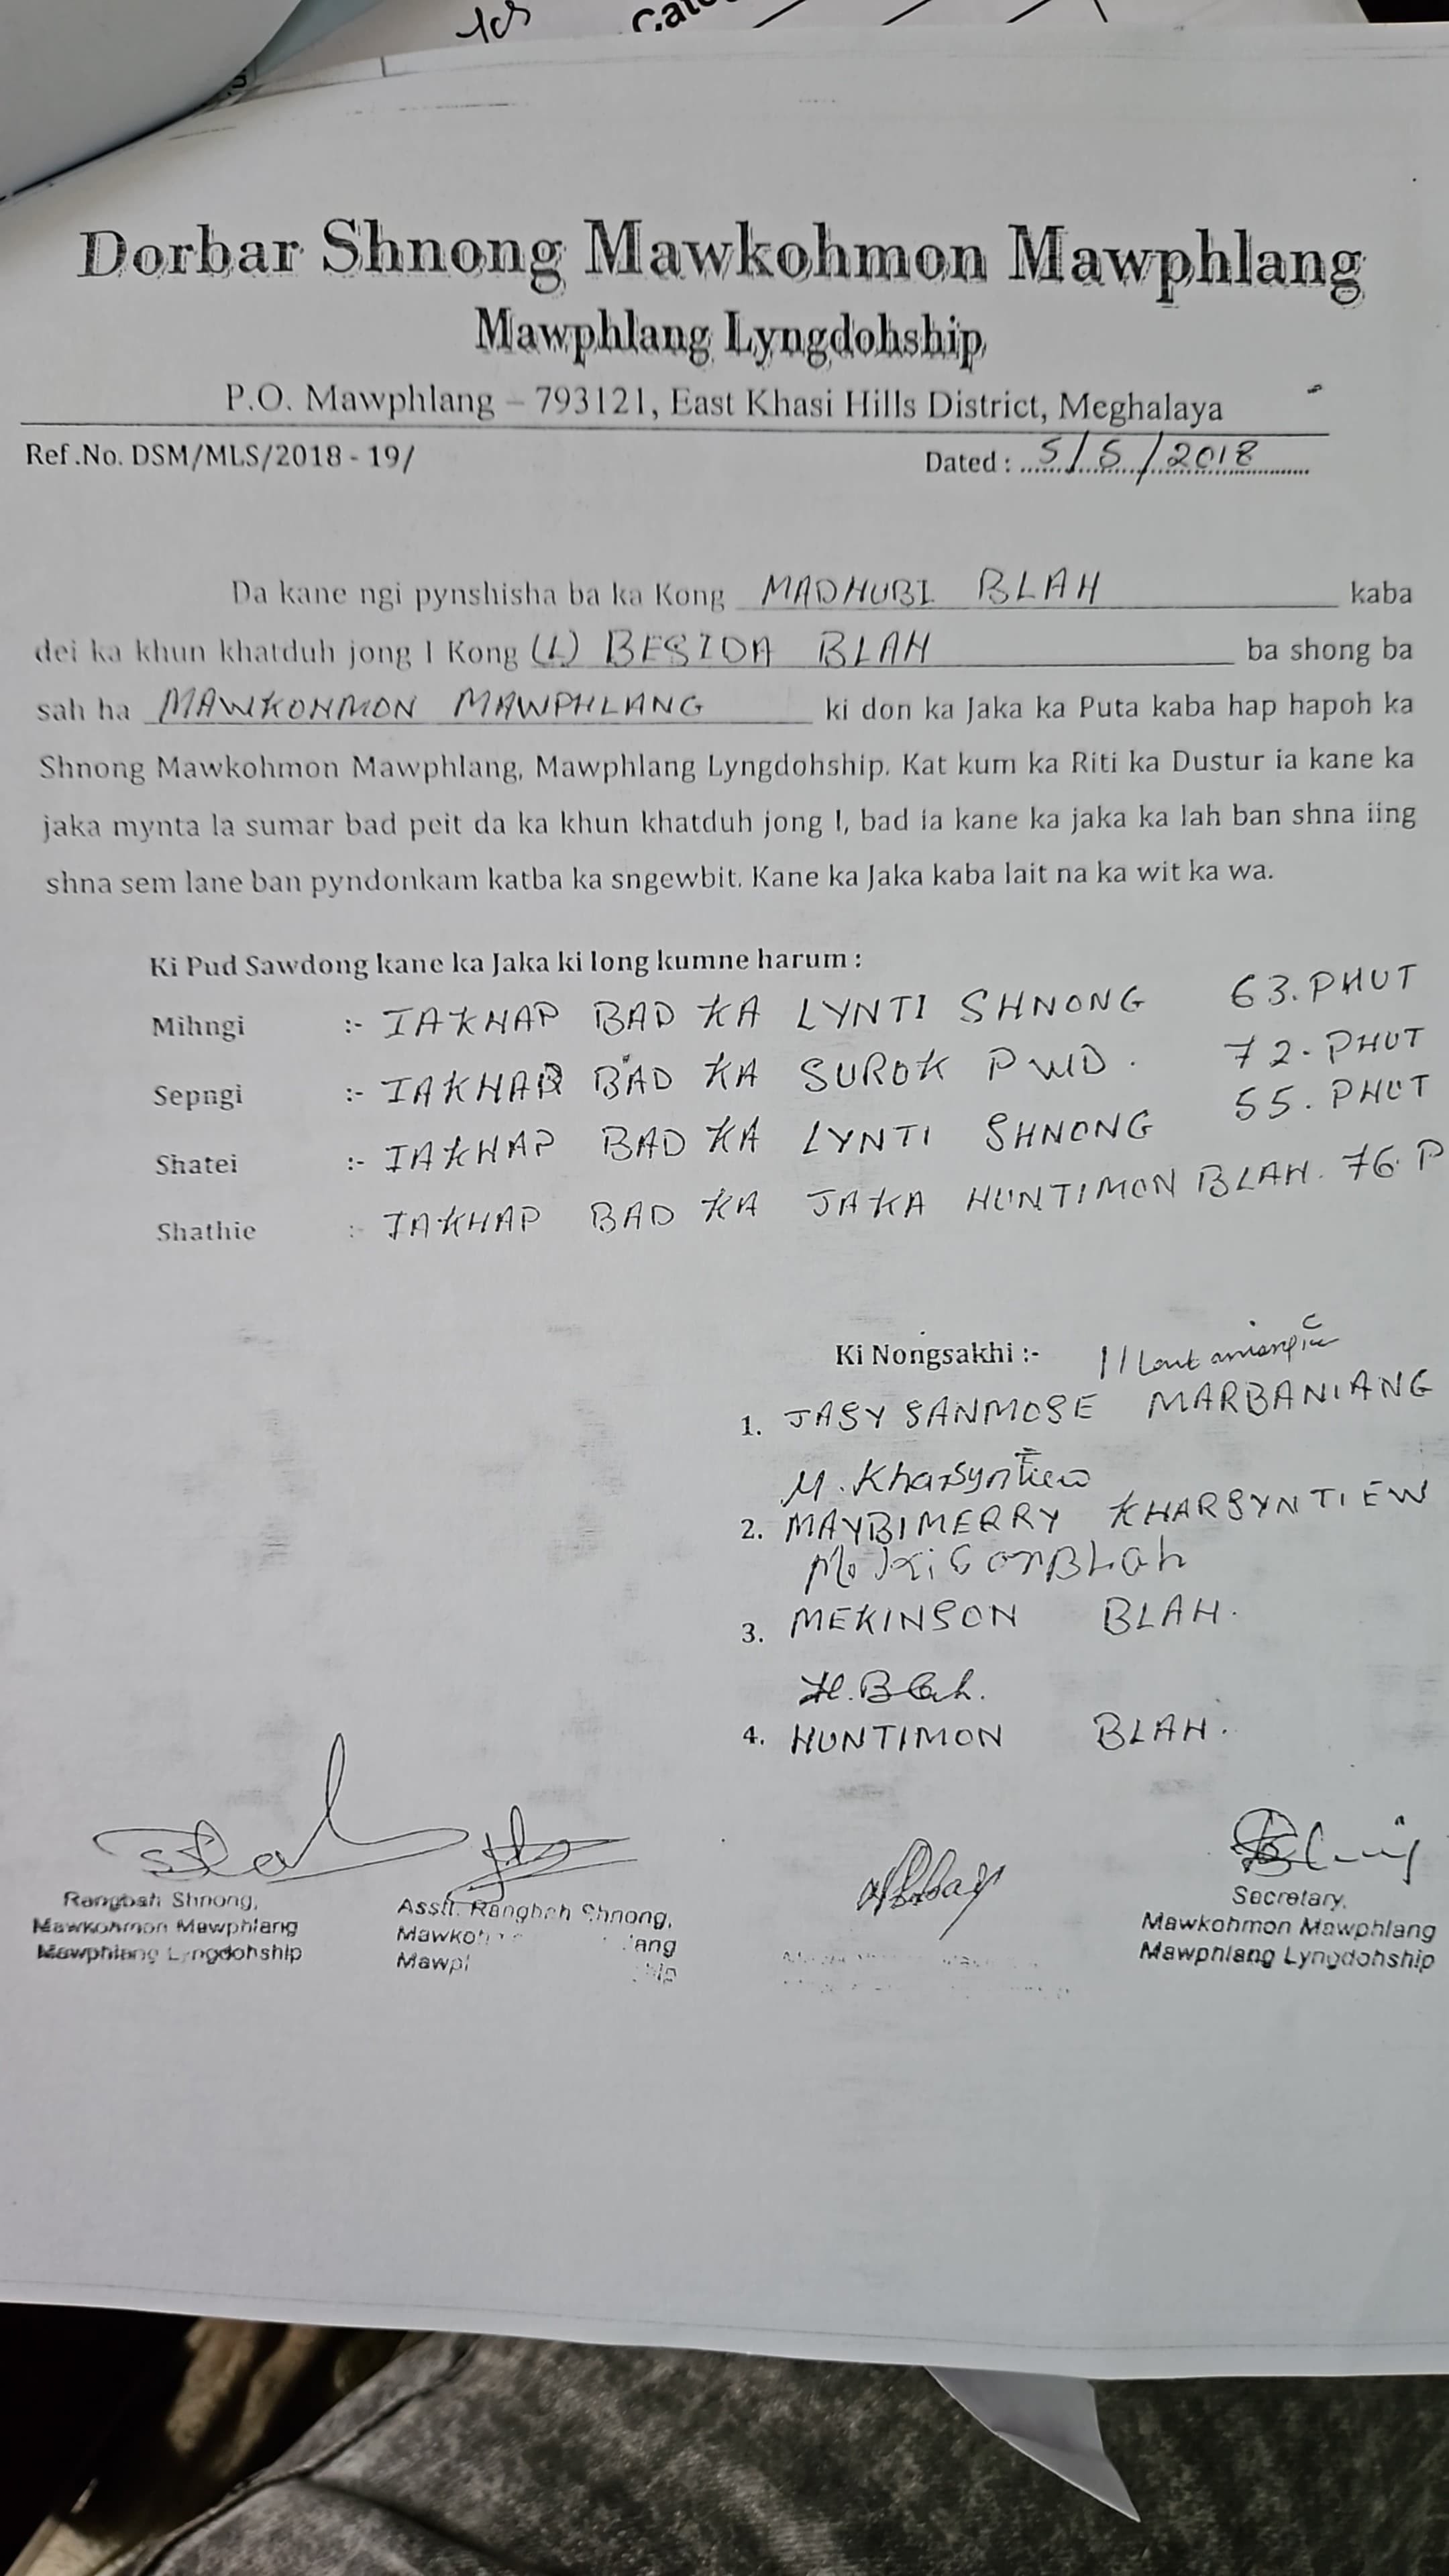 Dorbar Shnong Mawkohmon Mawphlang
Mawphlang Lyngdohship
P.O. Mawphlang – 793121, East Khasi Hills District, Meghalaya
Ref.No. DSM/MLS/2018 - 19/ Dated : 5/5/2018
Da kane ngi pynshisha ba ka Kong MADHUBI BLAH kaba
dei ka khun khatduh jong I Kong (L) BESIDA BLAH ba shong ba
sah ha MAWKOHMON MAWPHLANG ki don ka Jaka ka Puta kaba hap hapoh ka
Shnong Mawkohmon Mawphlang, Mawphlang Lyngdohship. Kat kum ka Riti ka Dustur ia kane ka
jaka mynta la sumar bad peit da ka khun khatduh jong I, bad ia kane ka jaka ka lah ban shna iing
shna sem lane ban pyndonkam katba ka sngewbit. Kane ka Jaka kaba lait na ka wit ka wa.
Ki Pud Sawdong kane ka Jaka ki long kumne harum :
Mihngi :- IAKHAP BAD KA LYNTI SHNONG 63. PHUT
Sepngi :- IAKHAP BAD KA SUROK PWD. 72. PHUT
Shatei :- IAKHAP BAD KA LYNTI SHNONG 55. PHUT
Shathie :- IAKHAP BAD KA JAKA HUNTIMON BLAH. 76. P
Ki Nongsakhi :-
1. JASY SANMOSE MARBANIANG
M. Kharsyntiew
2. MAYBIMERRY KHARSYNTIEW
3. MEKINSON BLAH.
H. Blah.
4. HUNTIMON BLAH.
Rangbah Shnong,
Mawkohmon Mawphlang
Mawphlang Lyngdohship
Asstt. Rangbah Shnong,
Secretary,
Mawkohmon Mawphlang
Mawphlang Lyngdohship